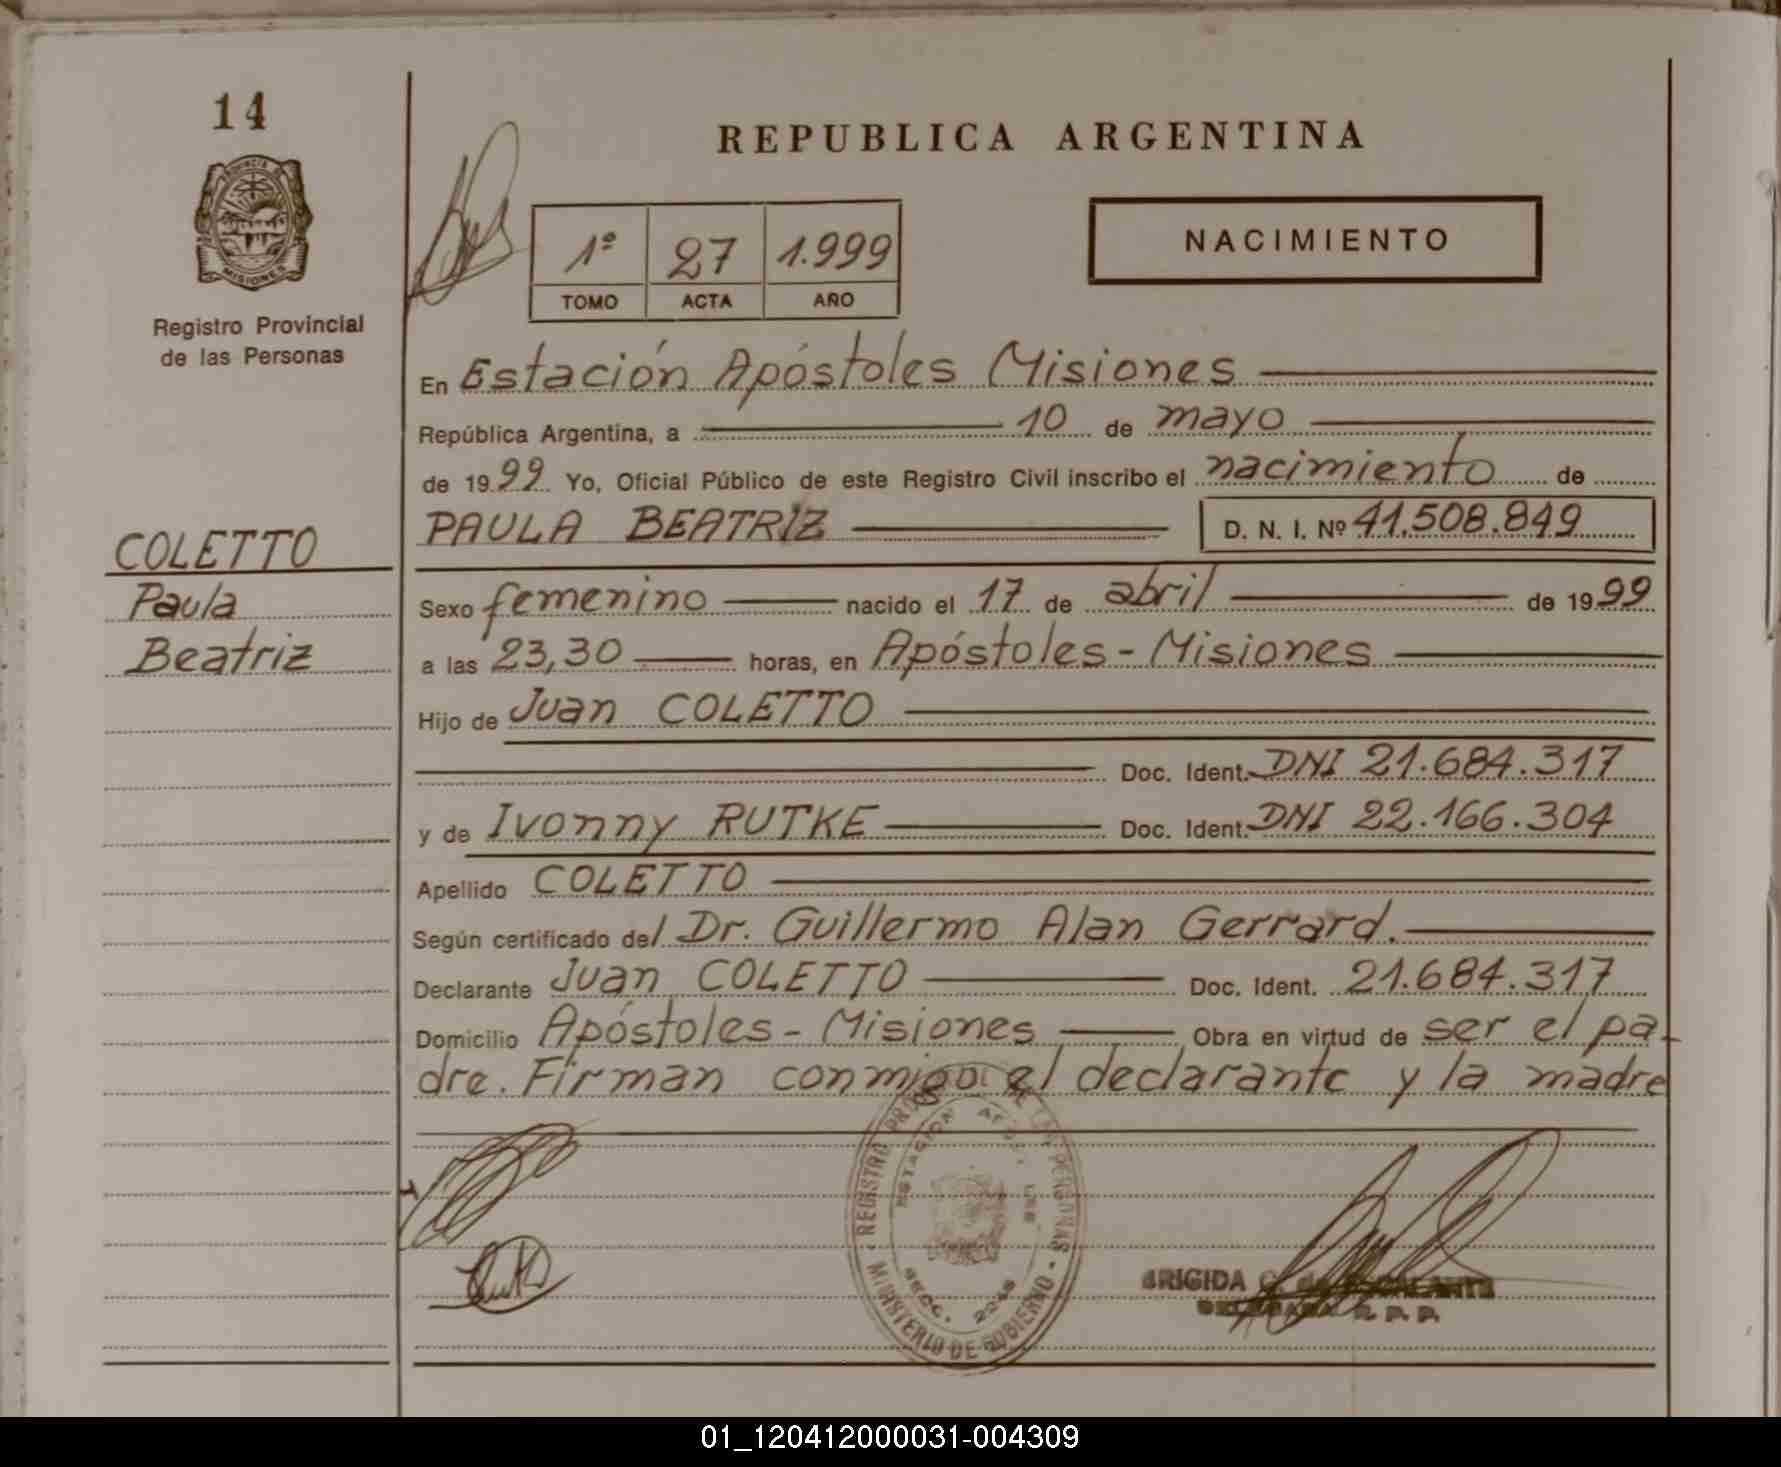 14
PROVINCIA DE
MISIONES
Registro Provincial
de las Personas
COLETTO
Paula
Beatriz
REPUBLICA ARGENTINA
1º 27 1.999
TOMO ACTA AÑO
NACIMIENTO
En Estación Apóstoles Misiones
República Argentina, a 10 de mayo
de 1999 Yo, Oficial Público de este Registro Civil inscribo el nacimiento de
PAULA BEATRIZ D. N. I. Nº 41.508.849
Sexo femenino nacido el 17 de abril de 1999
a las 23,30 horas, en Apóstoles - Misiones
Hijo de Juan COLETTO
Doc. Ident. DNI 21.684.317
y de Ivonny RUTKE Doc. Ident. DNI 22.166.304
Apellido COLETTO
Según certificado del Dr. Guillermo Alan Gerrard.
Declarante Juan COLETTO Doc. Ident. 21.684.317
Domicilio Apóstoles - Misiones Obra en virtud de ser el pa-
dre. Firman conmigo el declarante y la madre
REGISTRO PROVINCIAL DE LAS PERSONAS
ESTACION
SECC.
MINISTERIO DE GOBIERNO
BRIGIDA
R. P. P.
01_120412000031-004309